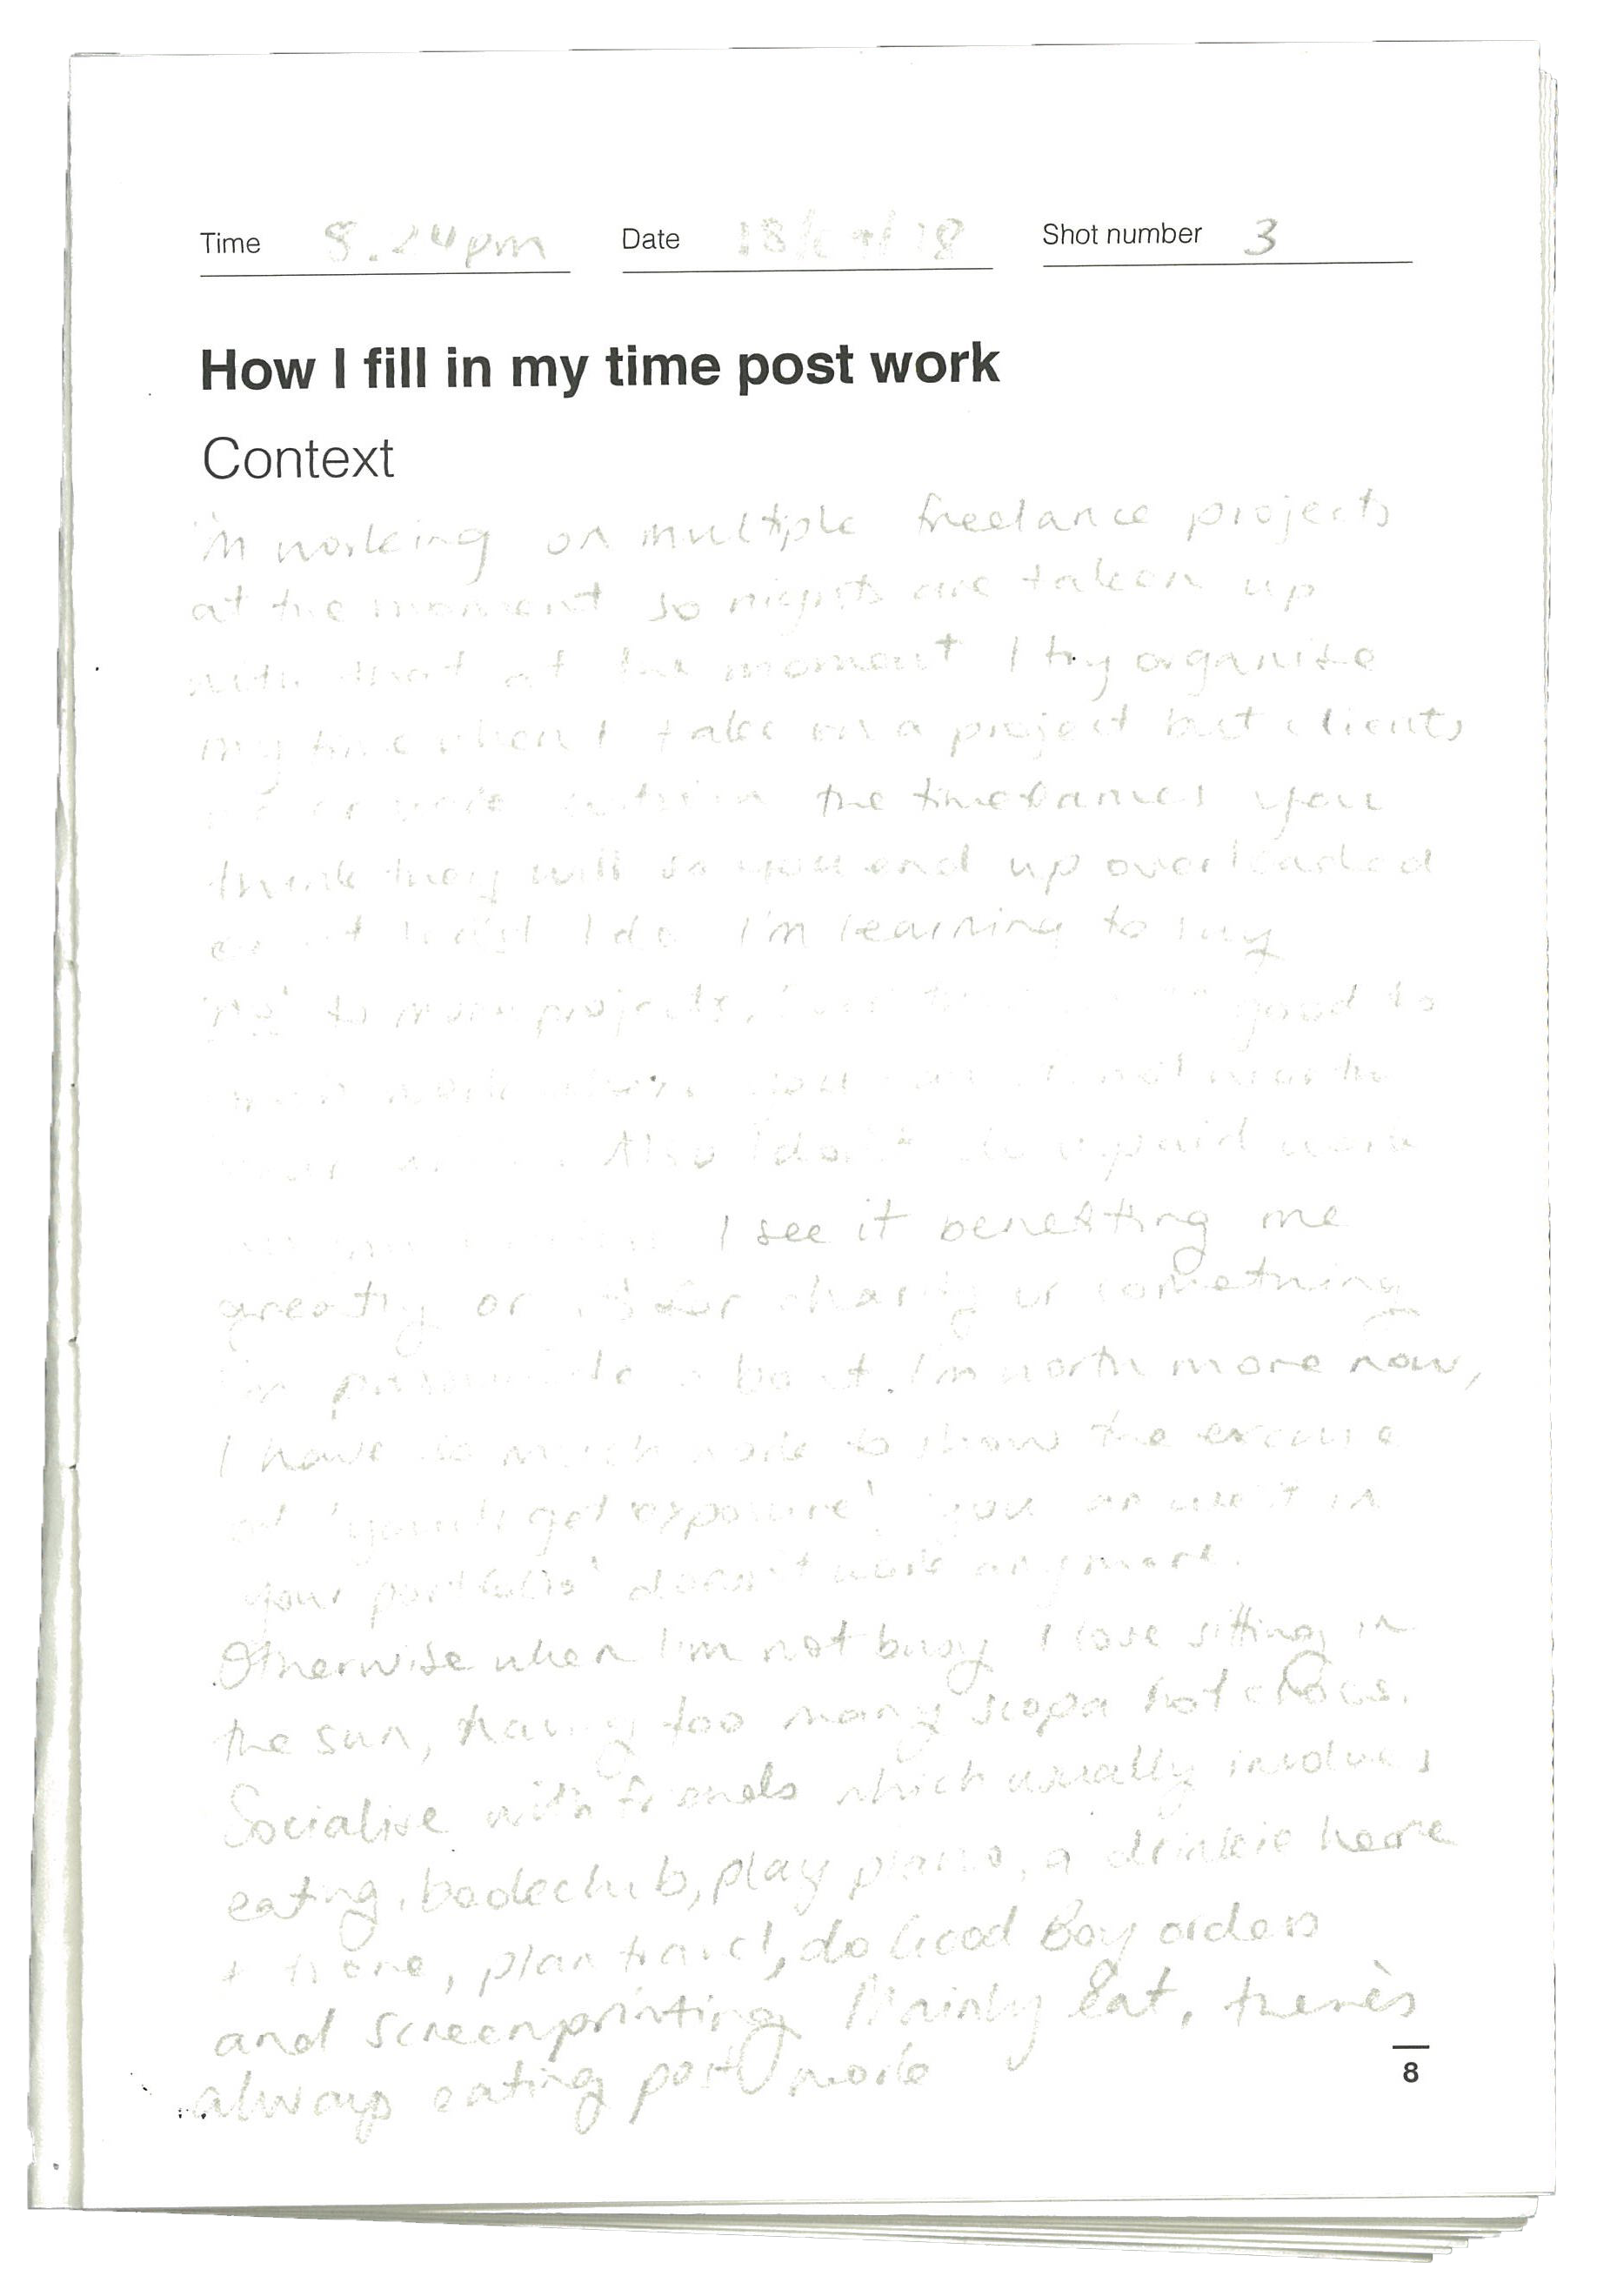 Time 8.24pm Date 18/ /18 Shot number 3
How I fill in my time post work
Context
I'm working on multiple freelance projects
at the moment so nights are taken up
with that at the moment I try organise
my time when I take on a project but clients
the timeframes you
think they will so you end up overloaded
I do I'm learning to say
'no' to more projects, good to
work you not worth
Also I don't do unpaid work
I see it benefiting me
greatly or it's for charity or something
I'm passionate about. I'm worth more now,
I have so much work to show the excuse
of 'you'll get exposure' 'you can use it in
your portfolio' doesn't work anymore.
Otherwise when I'm not busy I love sitting in
the sun, having too many scopa hot chocs.
Socialise with friends which usually involves
eating, bookclub, play piano, a drinkie here
+ there, plan travel, do Good Boy orders
and screenprinting Mainly Eat, there's
always eating post work
8